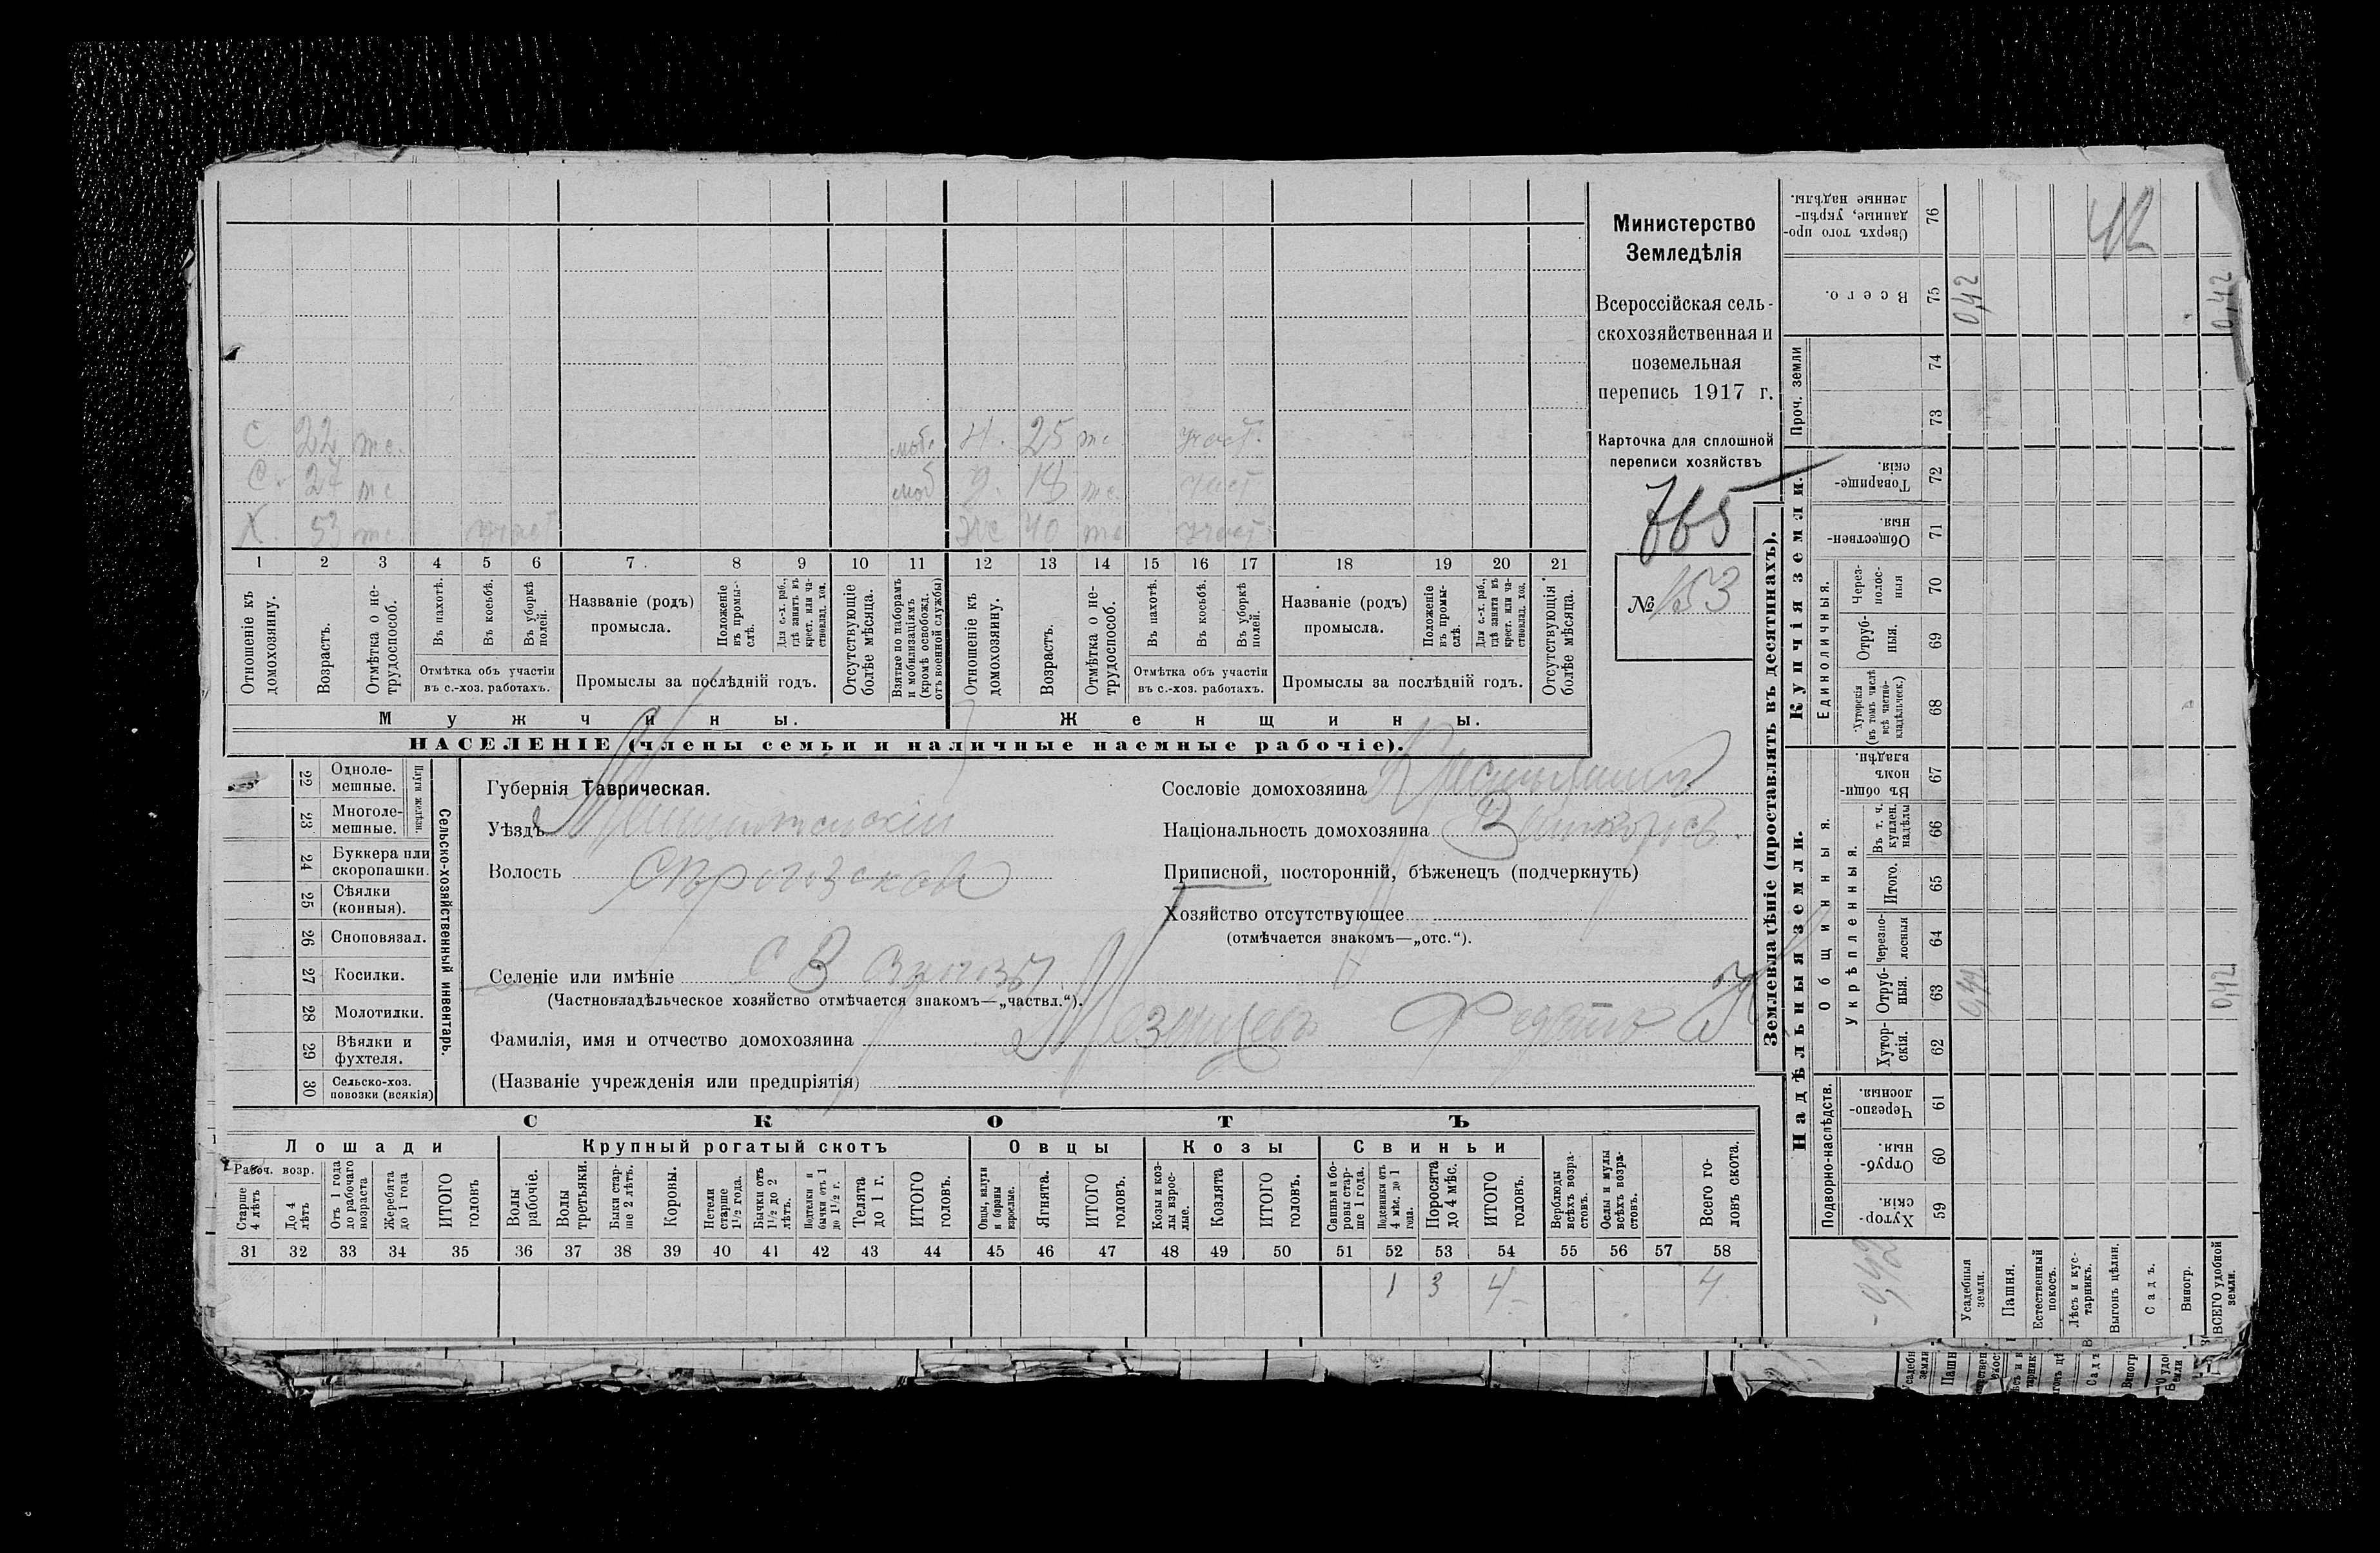 Министерство
Земледѣлія
Всероссійская сель-
скохозяйственная и
поземельная
перепись 1917 г.
Карточка для сплошной
переписи хозяйствъ
765
№ 153
С 22 мѣс. Н. 25 участ.
С. 24 моб Д. 18 участ
Х. 53 участ Же 40 участ
1 2 3 4 5 6 7 8 9 10 11 12 13 14 15 16 17 18 19 20 21
Отношеніе къ домохозяину.
Возрастъ.
Отмѣтка о не-трудоспособ.
Въ пахотѣ.
Въ косьбѣ.
Въ уборкѣ полей.
Отмѣтка объ участіи
въ с.-хоз. работахъ.
Названіе (родъ)
промысла.
Положеніе въ промы-слѣ.
Для с.-х. раб., гдѣ занятъ въ крест. или ча-стновлад. хоз.
Промыслы за послѣдній годъ.
Отсутствующіе болѣе мѣсяца.
Взятые по наборамъ и мобилизаціямъ (кромѣ освобожд. отъ военной службы)
Отношеніе къ домохозяину.
Возрастъ.
Отмѣтка о не-трудоспособ.
Въ пахотѣ.
Въ косьбѣ.
Въ уборкѣ полей.
Отмѣтка объ участіи
въ с.-хоз. работахъ.
Названіе (родъ)
промысла.
Положеніе въ промы-слѣ.
Для с.-х. раб., гдѣ занята въ крест. или ча-стновлад. хоз.
Промыслы за послѣдній годъ.
Отсутствующія болѣе мѣсяца.
Мужчины. Женщины.
НАСЕЛЕНІЕ (члены семьи и наличные наемные рабочіе).
22 Одноле-мешные.
23 Многоле-мешные.
Плуги желѣзн.
24 Буккера или скоропашки.
25 Сѣялки (конныя).
26 Сноповязал.
27 Косилки.
28 Молотилки.
29 Вѣялки и фухтеля.
30 Сельско-хоз. повозки (всякія)
Сельско-хозяйственный инвентарь.
Губернія Таврическая.
Уѣздъ Мелитопольскій
Волость
Селеніе или имѣніе
(Частновладѣльческое хозяйство отмѣчается знакомъ—„частвл.“).
Фамилія, имя и отчество домохозяина
(Названіе учрежденія или предпріятія)
Сословіе домохозяина Крестьянинъ
Національность домохозяина Великорос.
Приписной, посторонній, бѣженецъ (подчеркнуть)
Хозяйство отсутствующее
(отмѣчается знакомъ—„отс.“).
СКОТЪ
Лошади Крупный рогатый скотъ Овцы Козы Свиньи
Рабоч. возр.
Старше 4 лѣтъ
До 4 лѣтъ
Отъ 1 года до рабочаго возраста
Жеребята до 1 года
ИТОГО головъ
Волы рабочіе.
Волы третьяки.
Быки стар-ше 2 лѣтъ.
Коровы.
Нетели старше 1½ года.
Бычки отъ 1½ до 2 лѣтъ.
Подтелки и бычки отъ 1 до 1½ г.
Телята до 1 г.
ИТОГО головъ.
Овцы, валухи и бараны взрослые.
Ягнята.
ИТОГО головъ.
Козы и коз-лы взрос-лые.
Козлята
ИТОГО головъ.
Свиньи и бо-ровы стар-ше 1 года.
Подсвинки отъ 4 мѣс. до 1 года.
Поросята до 4 мѣс.
ИТОГО головъ.
Верблюды всѣхъ возра-стовъ.
Ослы и мулы всѣхъ возра-стовъ.
Всего го-ловъ скота.
31 32 33 34 35 36 37 38 39 40 41 42 43 44 45 46 47 48 49 50 51 52 53 54 55 56 57 58
1 3 4 4
Землевладѣніе (проставлять въ десятинахъ).
Надѣльныя земли. Купчія земли. Проч. земли
Подворно-наслѣдств.
Общинныя.
Укрѣпленныя.
Единоличныя.
Хутор-скія. 59
Отруб-ныя. 60
Черезпо-лосныя. 61
Хутор-скія. 62
Отруб-ныя. 63
Черезпо-лосныя 64
Итого. 65
Въ т. ч. куплен. надѣлы 66
Въ общи-номъ владѣн. 67
Хуторскія (въ томъ числѣ всѣ частно-владѣльческ.) 68
Отруб-ныя. 69
Через-полос-ныя 70
Обществен-ныя. 71
Товарище-скія. 72
73
74
Всего. 75
Сверхъ того про-данные, укрѣп-ленные надѣлы. 76
Усадебныя земли.
Пашня.
Естественный покосъ.
Лѣсъ и кус-тарникъ.
Выгонъ цѣлин.
Садъ.
Виногр.
ВСЕГО удобной земли.
0,42
0,42
0,42
0,42
42